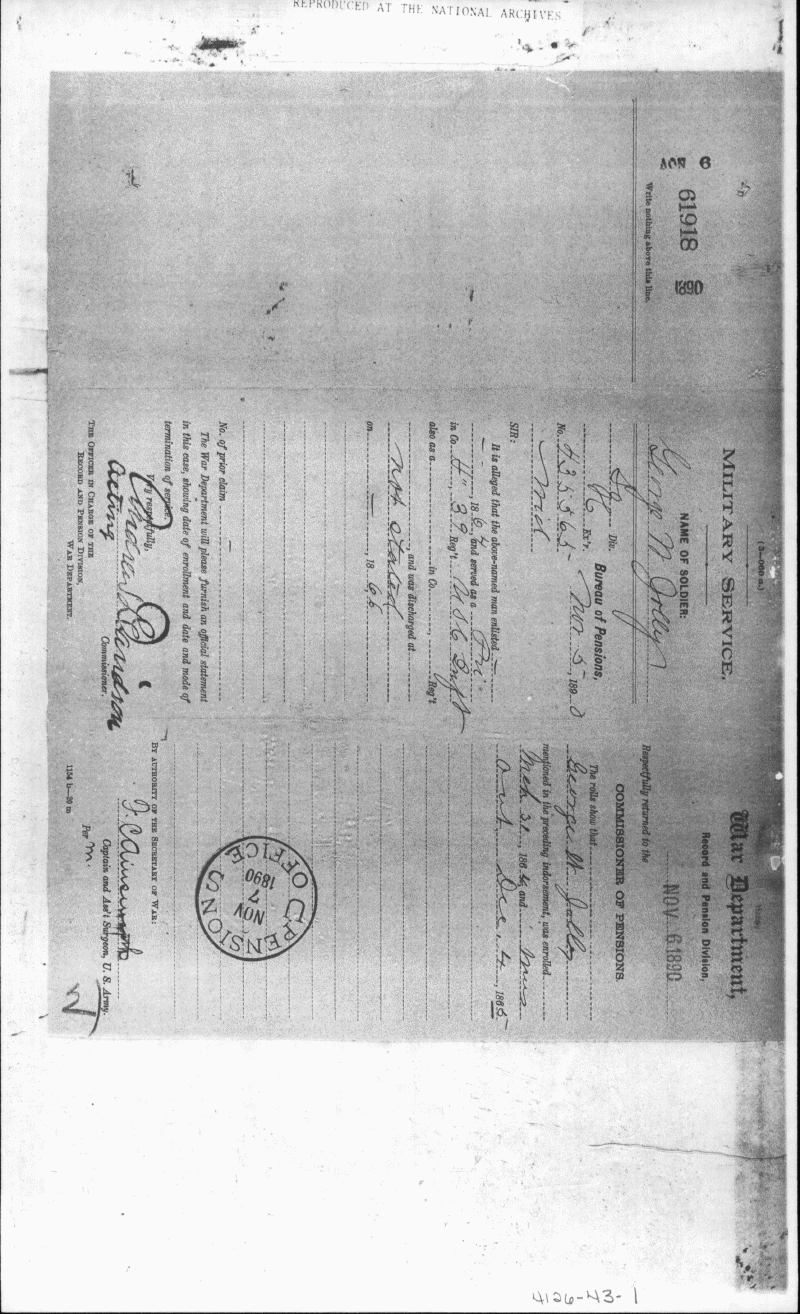 REPRODUCED AT THE NATIONAL ARCHIVES
NOV 6
61918
1890
Write nothing above this line.
(3—060 a.)
MILITARY SERVICE.
NAME OF SOLDIER:
George W Jolley
Div.
Ex'r.
Bureau of Pensions,
No. 435565
Nov. 5, 1890
Md
SIR:
It is alleged that the above-named man enlisted —
—, 1864, and served as a Pri.
in Co. "H", 39 Reg't. U S C Inft
also as a, in Co., Reg't
, and was discharged at
not stated
on —, 1866
No. of prior claim —
The War Department will please furnish an official statement
in this case, showing date of enrollment and date and mode of
termination of service.
Very respectfully,
Acting
Commissioner.
THE OFFICER IN CHARGE OF THE
RECORD AND PENSION DIVISION,
WAR DEPARTMENT.
War Department,
Record and Pension Division,
NOV 6 1890
Respectfully returned to the
COMMISSIONER OF PENSIONS
The rolls show that
George W. Jolley
mentioned in the preceding indorsement, was enrolled
Mch 30, 1864, and Mus
out Dec. 4, 1865
U.S. PENSION OFFICE
NOV
7
1890
BY AUTHORITY OF THE SECRETARY OF WAR:
F. C. Ainsworth
Captain and Ass't Surgeon, U. S. Army.
Per M.
1154 b—20 m
2
4126-43-1